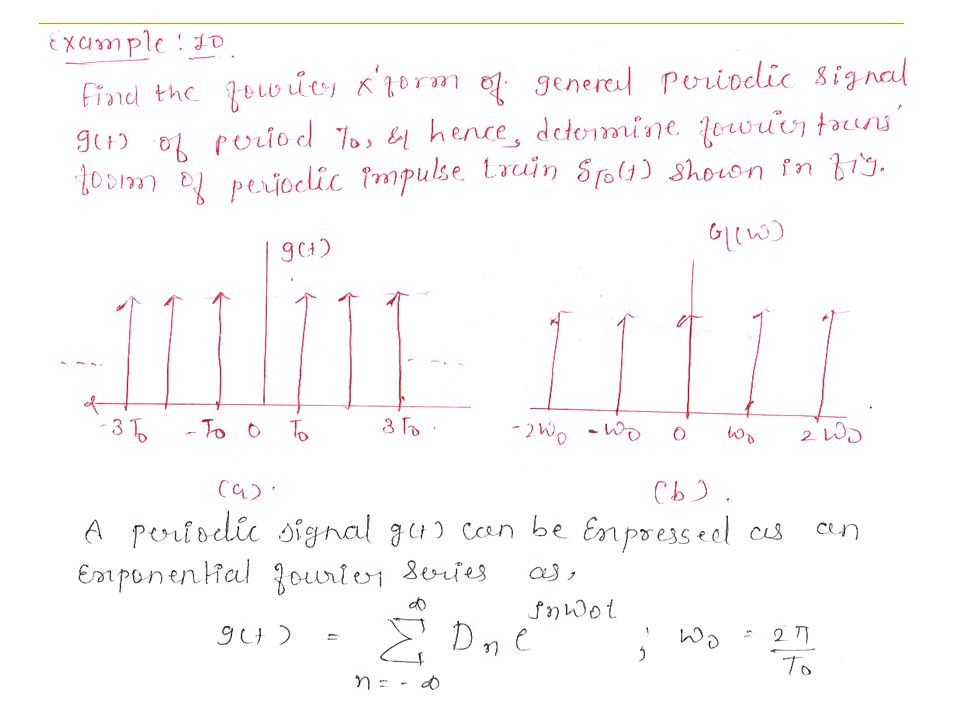 Example: 10.
Find the fourier x'form of general periodic signal
g(t) of period T0, & hence, determine fourier trans'
form of periodic impulse train δT0(t) shown in fig.
g(t)
G(w)
-3T0 -T0 0 T0 3T0
-2W0 -W0 0 W0 2W0
(a).
(b).
A periodic signal g(t) can be Enpressed as an
Enponential fourier series as,
g(t) = ∑ n=-∞ ∞ Dn e^jnW0t ; W0 = 2π/T0